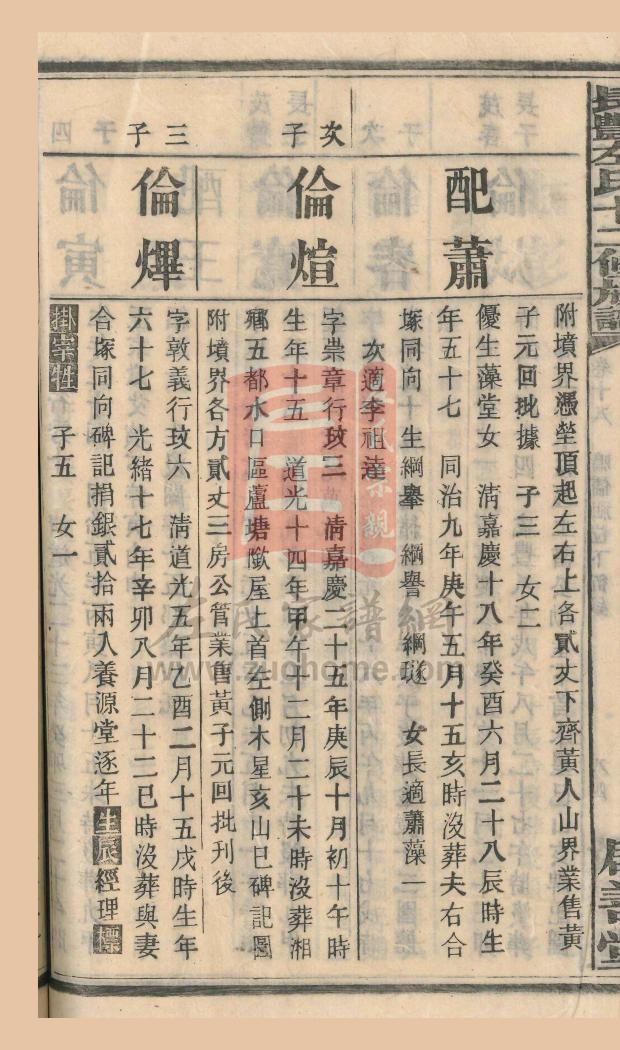 長豐左氏十二修族譜
居善堂
附墳界憑塋頂起左右上各貳丈下齊黃人山界業售黃
子元回批據 子三 女二
配蕭
優生藻堂女 淸嘉慶十八年癸酉六月二十八辰時生
年五十七 同治九年庚午五月十五亥時沒葬夫右合
塚同向 生綱擧 綱譽 綱璲 女長適蕭藻一
次適李祖達
次子
倫煊
字崇章行玟三 淸嘉慶二十五年庚辰十月初十午時
生年十五 道光十四年甲午十二月二十未時沒葬湘
鄉五都水口區蘆塘歐屋土首左側木星亥山巳碑記圖
附墳界各方貳丈三房公管業售黃子元回批刊後
三子
倫燡
字敦義行玟六 淸道光五年乙酉二月十五戌時生年
六十七 光緒十七年辛卯八月二十二巳時沒葬與妻
合塚同向碑記捐銀貳拾兩入養源堂逐年生辰經理標
掛宰牲 子五 女一
左氏家譜網
www.zuohome.com